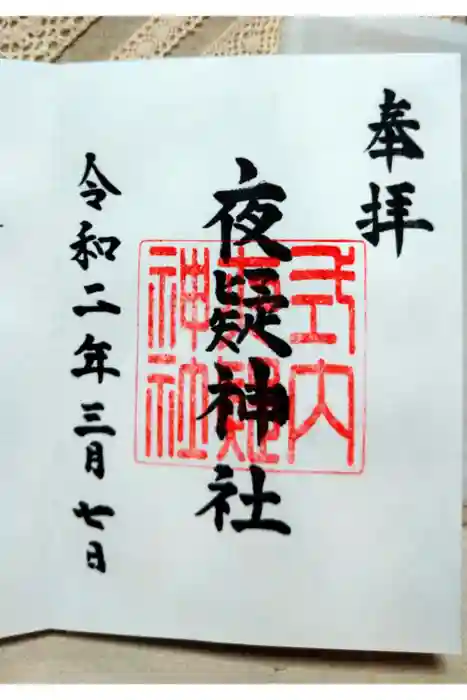 奉拝
夜疑神社
式内
夜疑
神社
令和二年三月七日